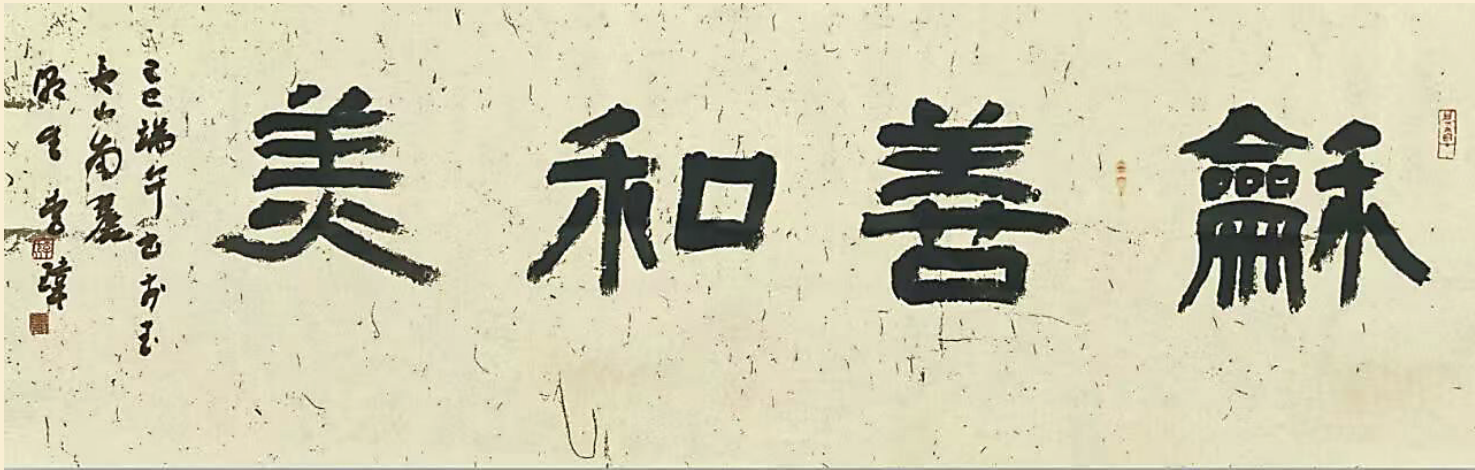 龢善和美
巳端午书于玉
山南麓
李